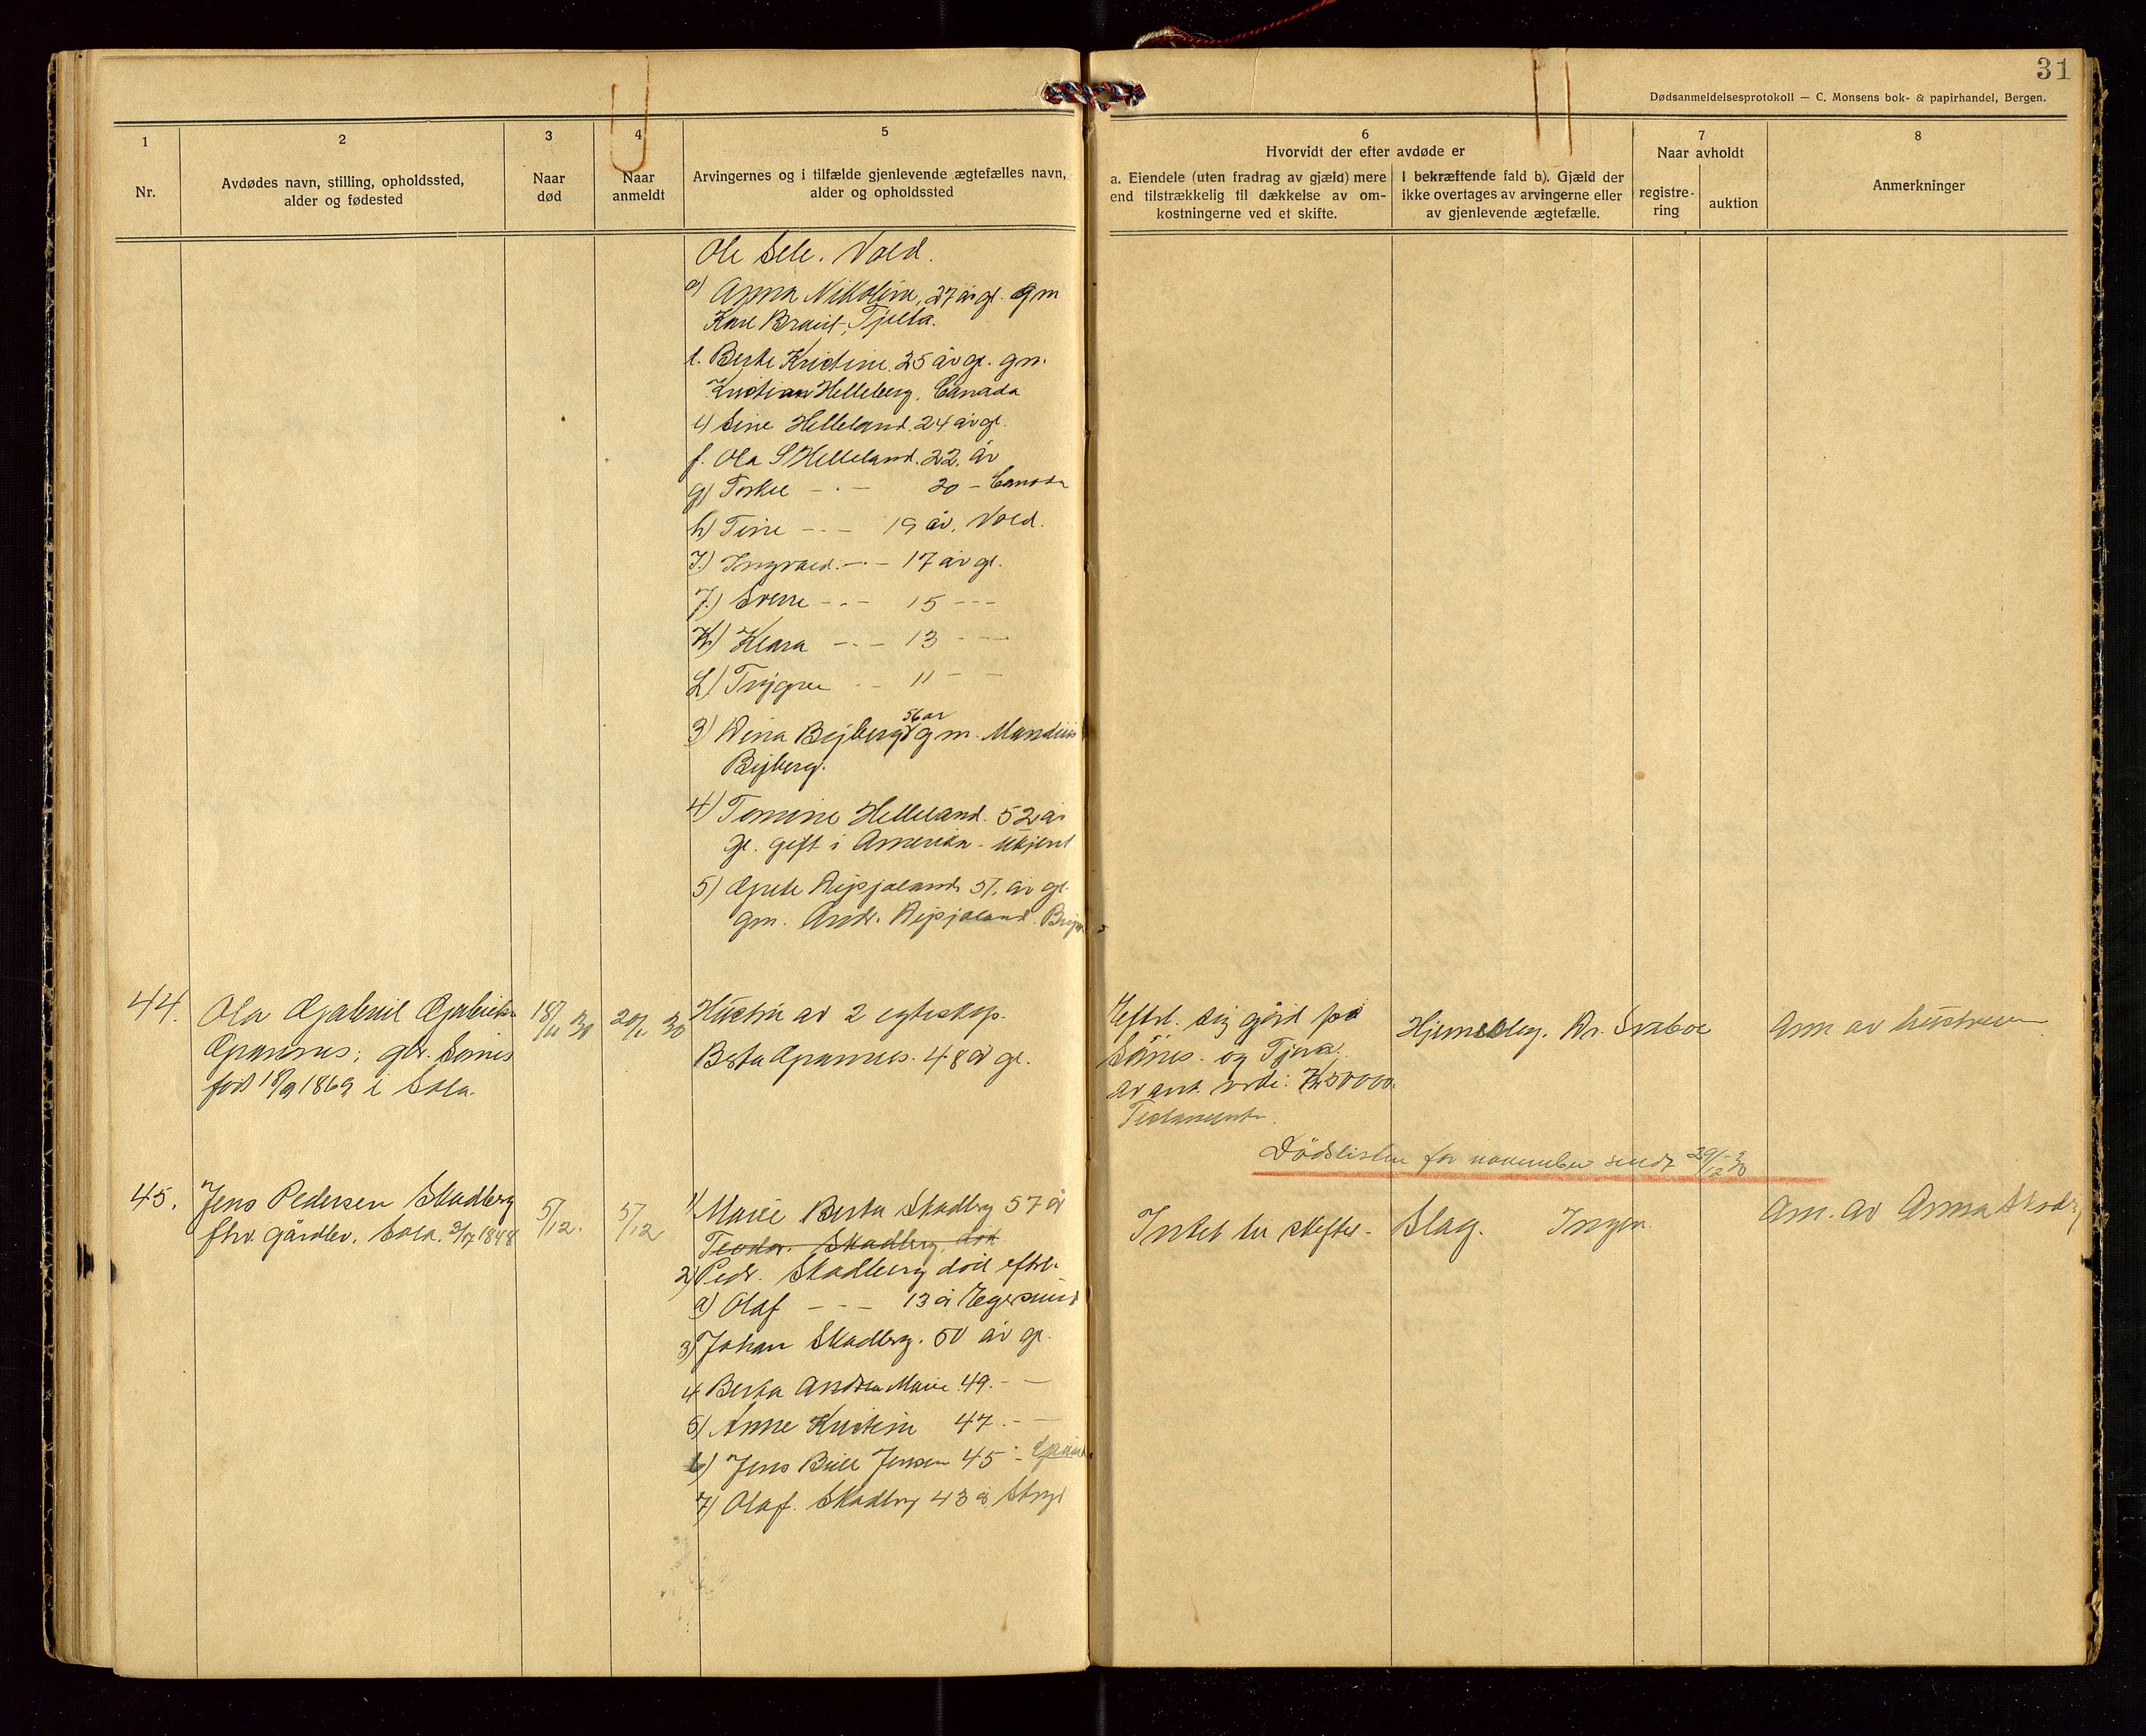 31
Dødsanmeldelsesprotokoll — C. Monsens bok- & papirhandel, Bergen.
1
Nr.
2
Avdødes navn, stilling, opholdssted,
alder og fødested
3
Naar
død
4
Naar
anmeldt
5
Arvingernes og i tilfælde gjenlevende ægtefælles navn,
alder og opholdssted
6
Hvorvidt der efter avdøde er
a. Eiendele (uten fradrag av gjæld) mere
end tilstrækkelig til dækkelse av om-
kostningerne ved et skifte.
I bekræftende fald b). Gjæld der
ikke overtages av arvingerne eller
av gjenlevende ægtefælle.
7
Naar avholdt
registre-
ring
auktion
8
Anmerkninger
Ole Sele. Vold.
Anna Nikoline, 27 år gl. gm
Karl Tjelta.
Berte Kristine. 25 år gl. gm.
Kristian Helleberg, Canada
Sine Helleland. 24 år gl.
f. Ola S Helleland. 22. år
g) Torkel - . - 20 - Canada
h) Tine - . - 19 år, Vold.
I.) Ingvald. - . - 17 år gl.
J.) Sverre - . - 15 - - -
K.) Klara - . - 13 - - -
L) Trygve - - 11 - -
56 år
3) Bijberg gm. Mandius
Bijberg.
4) Tomine Helleland. 52 år
gl. gift i Amerika - ukjent
5) 51. år gl.
gm. Andr.
44.
Ola Gabriel
født 18/9 1869 i Sola.
18/11 30
20/11 30
Hustru av 2 egteskap.
Berta 48 år gl.
Efterl. sig gård på
Sømes. og Tjora.
av ant. verdi: Kr 50000.
Testamente.
Hjemmeleg. Dr. Svaboe
Anm av hustruen
Dödslisten for november sendt 29/12 30
45.
Jens Pedersen Skadberg
fhv. gårdbr. Sola. 1848
5/12.
5/12
1) Marie Berta Skadberg 57 å
Teodor. Skadberg, död
2) Pedr. Skadberg död efterl.
a) Olaf - - - 13 å Egersund
3) Johan Skadberg. 50 år gl.
4 Berta Andrea Marie 49. - -
5) Anne Kristine 47. - -
6) Jens Jensen 45 -
7) Olaf. Skadberg 43 å
Intet til skifte -
Slag.
Ingen.
Anm. av Anna